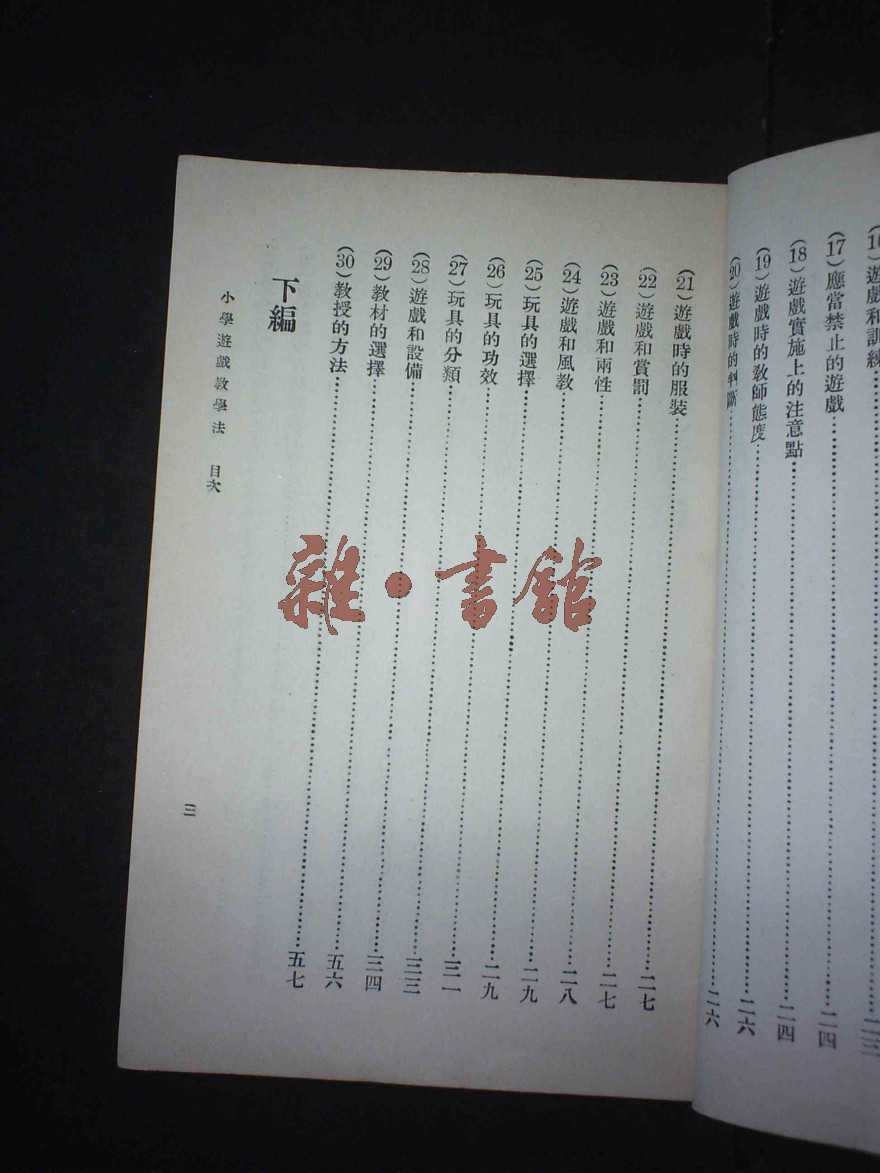 (16)遊戲和訓練…………二三
(17)應當禁止的遊戲…………二四
(18)遊戲實施上的注意點…………二四
(19)遊戲時的敎師態度…………二六
(20)遊戲時的判斷…………二六
(21)遊戲時的服裝…………二七
(22)遊戲和賞罰…………二七
(23)遊戲和兩性…………二八
(24)遊戲和風教…………二九
(25)玩具的選擇…………二九
(26)玩具的功效…………三一
(27)玩具的分類…………三三
(28)遊戲和設備…………三四
(29)教材的選擇…………五六
(30)教授的方法…………五七
下編
小學遊戲教學法 目次
三
雜·書館